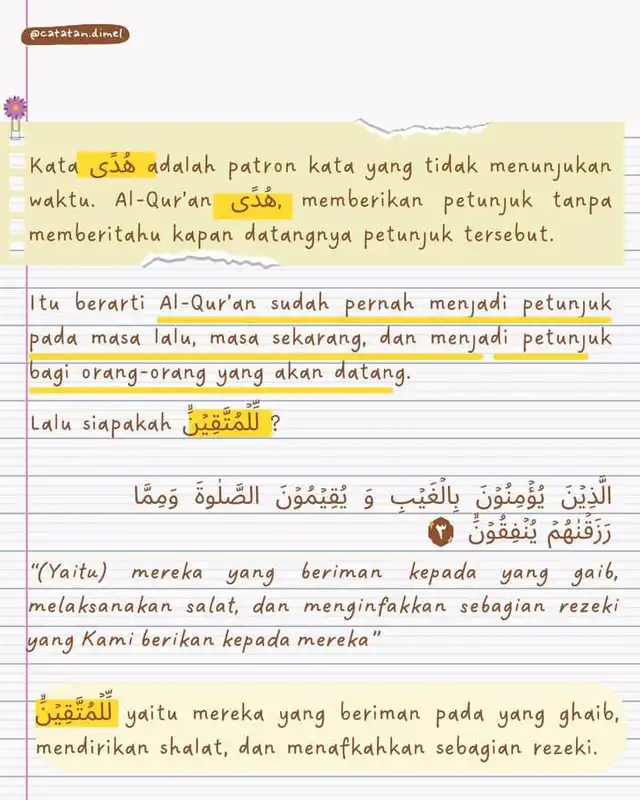 @catatan.dimel
Kata هُدًى adalah patron kata yang tidak menunjukan
waktu. Al-Qur'an هُدًى, memberikan petunjuk tanpa
memberitahu kapan datangnya petunjuk tersebut.
Itu berarti Al-Qur'an sudah pernah menjadi petunjuk
pada masa lalu, masa sekarang, dan menjadi petunjuk
bagi orang-orang yang akan datang.
Lalu siapakah لِّلْمُتَّقِيْنَۙ ?
الَّذِيْنَ يُؤْمِنُوْنَ بِالْغَيْبِ وَ يُقِيْمُوْنَ الصَّلٰوةَ وَمِمَّا
رَزَقْنٰهُمْ يُنْفِقُوْنَۙ ٣
"(Yaitu) mereka yang beriman kepada yang gaib,
melaksanakan salat, dan menginfakkan sebagian rezeki
yang Kami berikan kepada mereka"
لِّلْمُتَّقِيْنَۙ yaitu mereka yang beriman pada yang ghaib,
mendirikan shalat, dan menafkahkan sebagian rezeki.